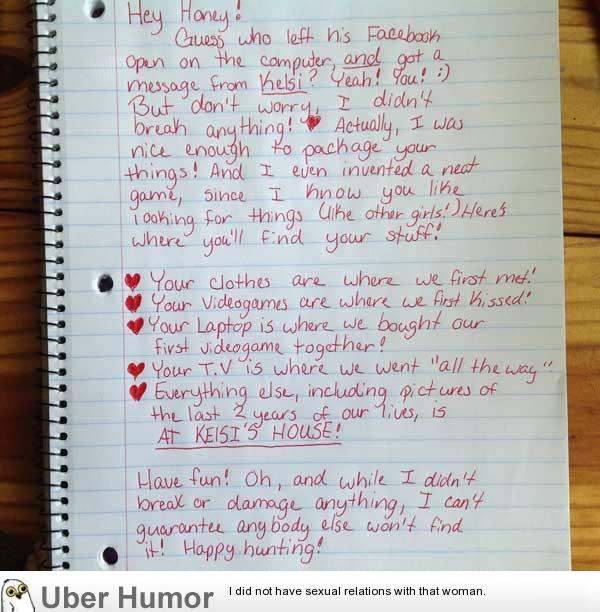 Hey Honey!
Guess who left his Facebook
open on the computer, and got a
message from Kelsi? Yeah! You! :)
But don't worry, I didn't
break anything! ♥ Actually, I was
nice enough to package your
things! And I even invented a neat
game, since I know you like
looking for things (like other girls!) Here's
where you'll find your stuff!
♥ Your clothes are where we first met!
♥ Your videogames are where we first kissed!
♥ Your Laptop is where we bought our
first videogame together!
♥ Your T.V is where we went "all the way".
♥ Everything else, including pictures of
the last 2 years of our lives, is
AT KELSI'S HOUSE!
Have fun! Oh, and while I didn't
break or damage anything, I can't
guarantee anybody else won't find
it! Happy hunting!
Uber Humor
I did not have sexual relations with that woman.